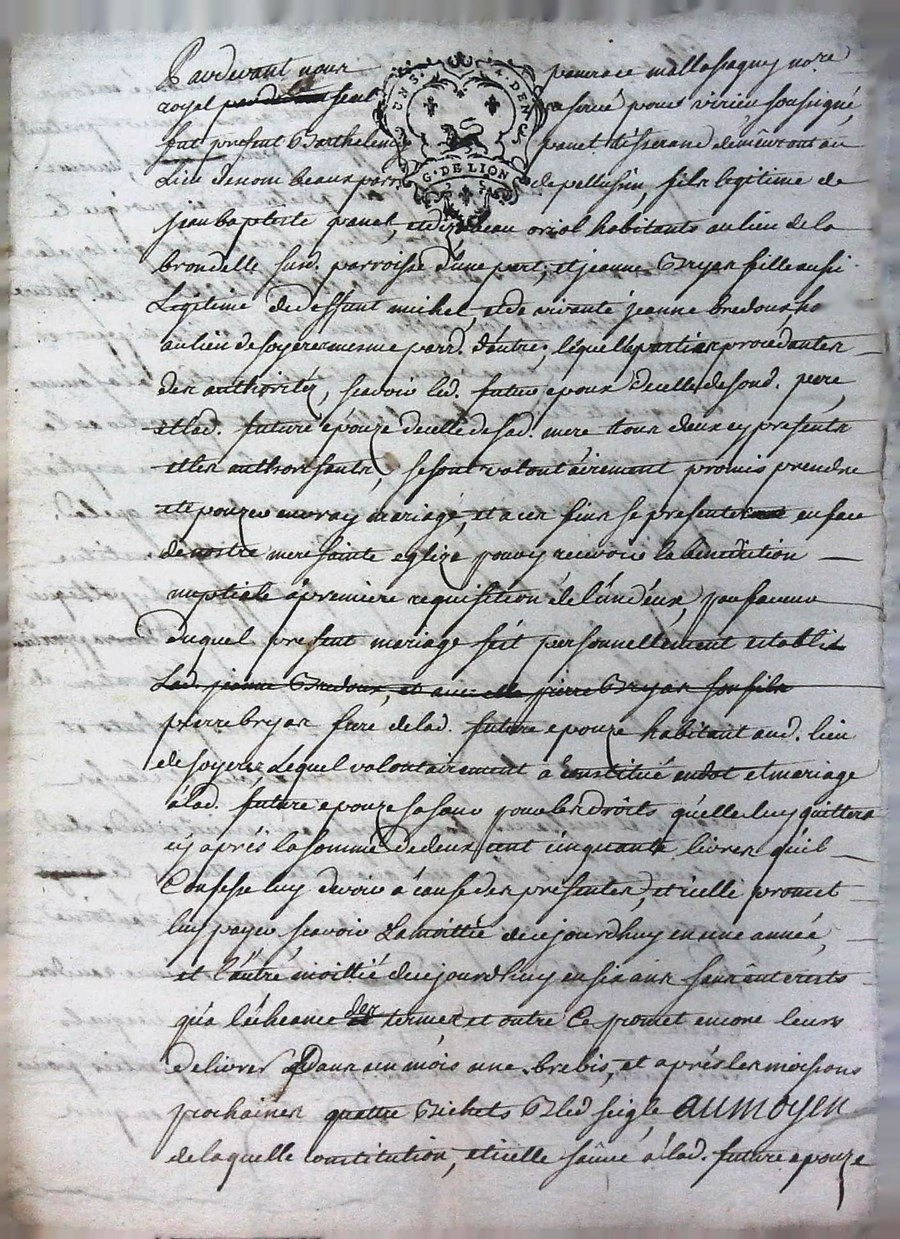 Pardevant nous pancrace mallassagny no.re
royal reservé pour virieu soussigné,
fut present Barthelemy panel tisserand demeurant au
UN S. 4. DEN
G. DE LION
Lieu de nom beaux parr. de pellusin, fils legitime de
jean baptiste panel, et d'izabeau oriol habitants au lieu de la
brondelle susd. parroisse d'une part, et jeanne Bryas fille aussi
Legitime de deffunt michel, et de vivante jeanne bredoux h.
au lieu de soyeres mesme parr. d'autre, lequelles parties procedantes
des authorités, scavoir led. futur epoux de celle de sond. pere,
et lad. future epouze de celle de sad. mere tous deux cy presents
et les authorisants, se sont volontairement promis prendre
et epouzer en vray mariage, et a ces fins se presenter en face
de nostre mere sainte eglize pour y recevoir la benediction
nuptiale a premiere requisition de l'un d'eux, en faveur
duquel present mariage s'est personnellement establit
Lad. jeanne Bredoux, et avec elle pierre Bryas son fils
pierre bryas frere de lad. future epouze habitant aud. lieu
de soyeres Lequel volontairement à constitué en dot et mariage
à lad. future epouze sa soeur pour les droits qu'elle luy quittera
cy après la somme de deux cent cinquante livres qu'il
Confesse luy devoir à cause des presentes, et icelle promet
luy payer, scavoir La moittié de cejourdhuy en une année,
et l'autre moittié de cejourdhuy en six ans sans interests
qu'a l'écheance des termes et outre ce promet encore leurs
delivrer Dans un mois une brebis, et après les moissons
prochaines quattre Bichets Bled seigle aumoyen
de laquelle constitution, et icelle sauve à lad. future epouze